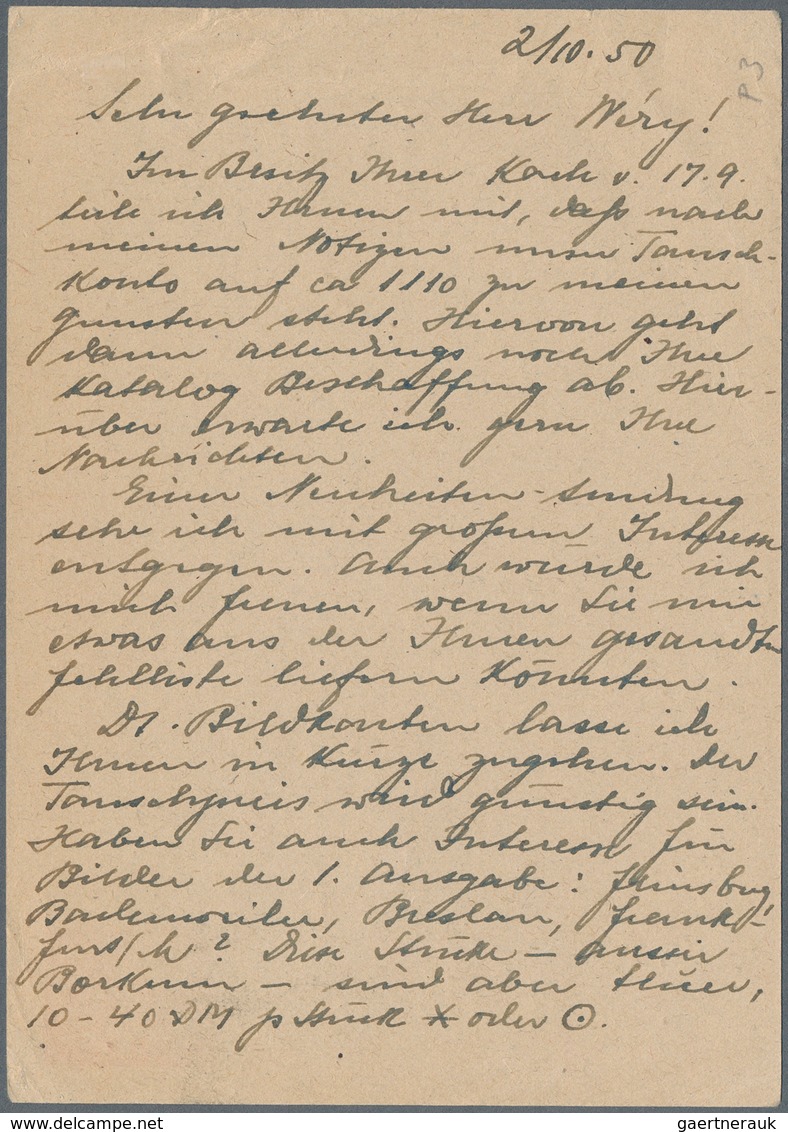 2/10.50
P3
Sehr geehrter Herr Wéry!
Im Besitz Ihrer Karte v. 17.9.
teile ich Ihnen mit, daß nach
meinen Notizen unser Tausch-
Konto auf ca 1110 zu meinen
Gunsten steht. Hiervon geht
dann allerdings noch Ihre
Katalog Beschaffung ab. Hier-
über erwarte ich gern Ihre
Nachrichten.
Einer Neuheiten-Sendung
sehe ich mit großem Interesse
entgegen. Auch würde ich
mich freuen, wenn Sie mir
etwas aus der Ihnen gesandten
Fehlliste liefern könnten.
Dt. Bildkarten lasse ich
Ihnen in Kürze zugehen. Der
Tauschpreis wird günstig sein.
Haben Sie auch Interesse für
Bilder der 1. Ausgabe: Flensburg,
Badenweiler, Breslau, Frank-
furt/M? Diese Stücke – ausser
Borkum – sind aber teuer,
10-40 DM p Stück * oder ⊙.
gaertnerauk
delcampe.net